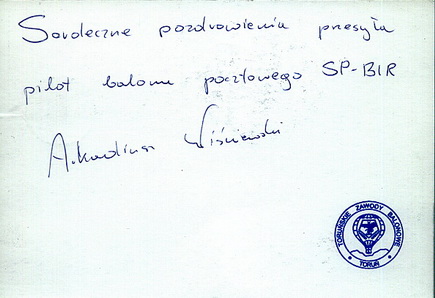 Serdeczne pozdrowienia przesyła
pilot balonu pocztowego SP-BIR
Arkadiusz Wiśniewski
TORUŃSKIE ZAWODY BALONOWE
TORUŃ